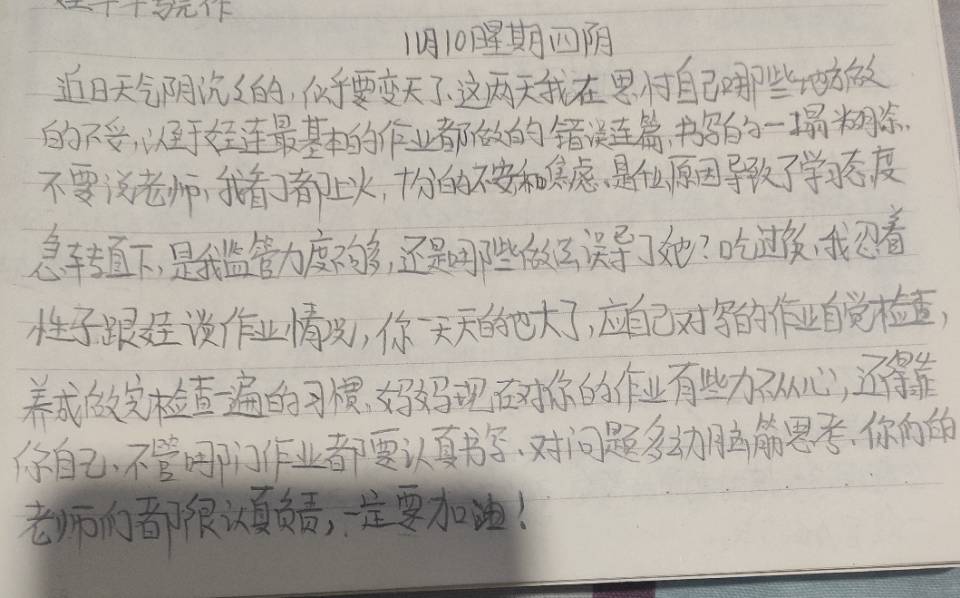 11月10日星期四阴
近日天气阴沉沉的,似乎要变天了.这两天我在思忖自己哪些地方做
的不妥,以至于娃连最基本的作业都做的错误连篇,书写的一塌糊涂.
不要说老师,我看了都上火,十分的不安和焦虑.是什么原因导致了学习态度
急转直下,是我监管力度不够多,还是哪些做法误导了她?吃过饭,我忍着
性子跟娃谈作业情况,你一天天的也大了,应自己对写的作业自觉检查,
养成做完检查一遍的习惯.妈妈现在对你的作业有些力不从心,还得靠
你自己.不管哪门作业都要认真书写.对问题多动脑筋思考.你们的
老师们都很认真负责,一定要加油!